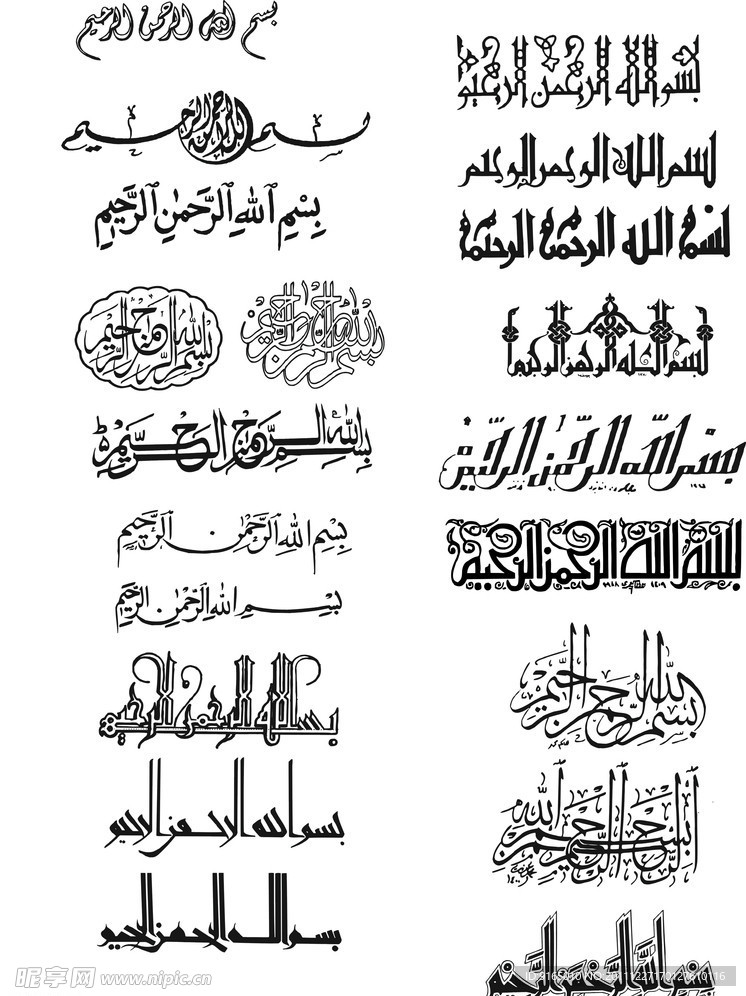 بسم الله الرحمن الرحيم
بسم الله الرحمن الرحيم
بِسْمِ ٱللهِ ٱلرَّحمٰنِ ٱلرَّحِيمِ
بسم الله الرحمن الرحيم
بسم الله الرحمن الرحيم
بسم الله الرحمن الرحيم
بِسْمِ اللهِ الرَّحْمٰنِ الرَّحِيمِ
بِسْمِ اللهِ الرَّحْمٰنِ الرَّحِيمِ
بسم الله الرحمن الرحيم
بسم الله الرحمن الرحيم
بسم الله الرحمن الرحيم
بسم الله الرحمن الرحيم
بسم الله الرحمن الرحيم
بسم الله الرحمن الرحيم
بسم الله الرحمن الرحيم
بسم الله الرحمن الرحيم
بسم الله الرحمن الرحيم
١٤٠٩ ١٩٨٨
بسم الله الرحمن الرحيم
بسم الله الرحمن الرحيم
بسم الله الرحمن الرحيم
昵享网 www.nipic.cn